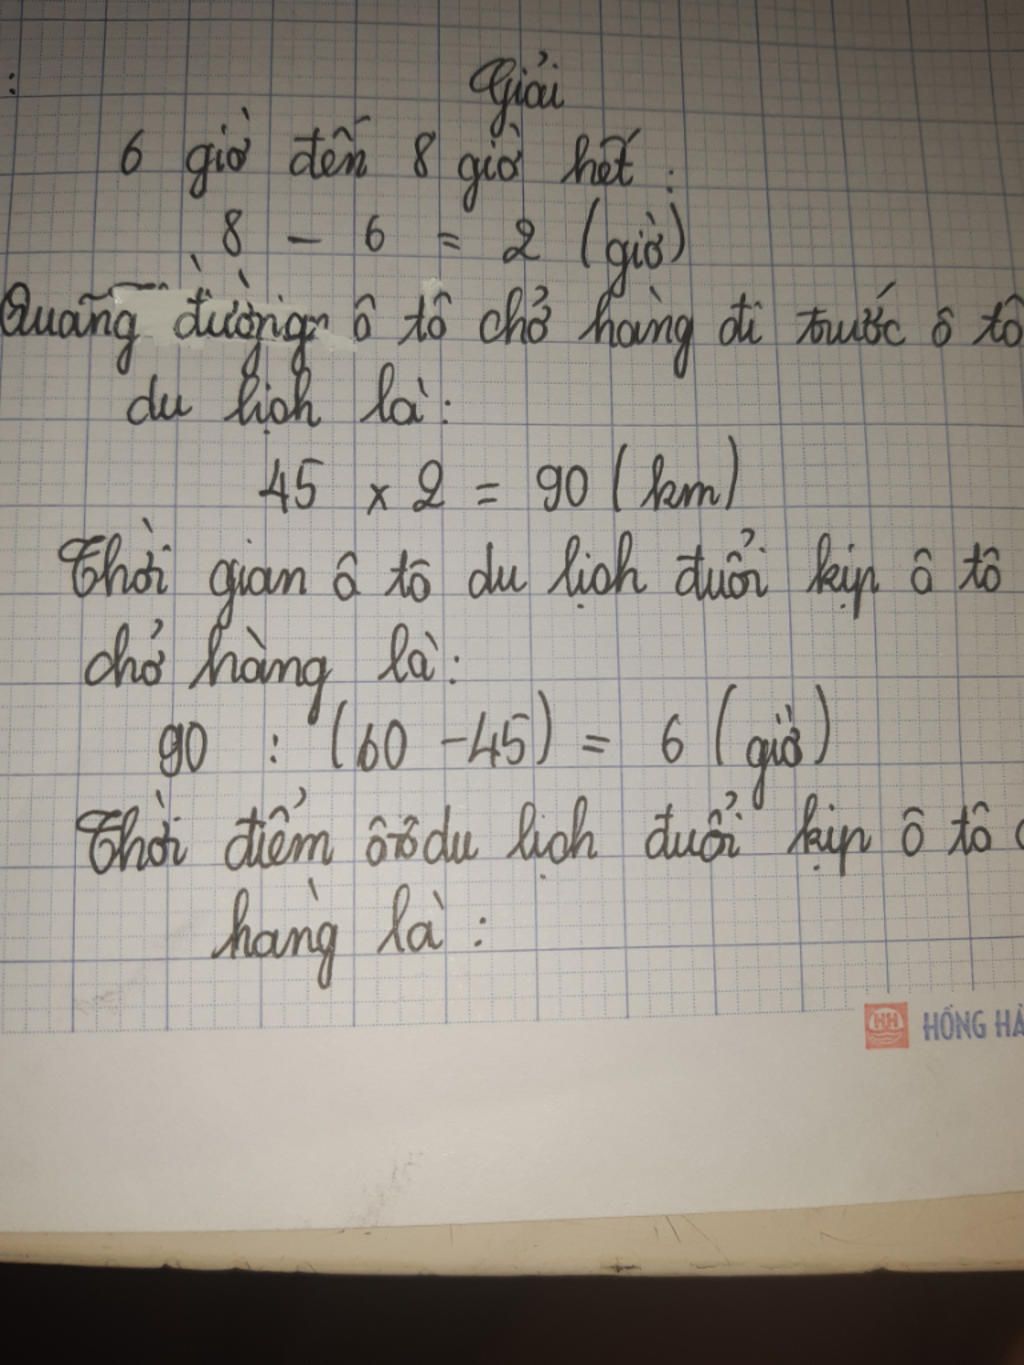 :
Giải
6 giờ đến 8 giờ hết :
8 - 6 = 2 (giờ)
Quãng đường ô tô chở hàng đi trước ô tô
du lịch là:
45 x 2 = 90 (km)
Thời gian ô tô du lịch đuổi kịp ô tô
chở hàng là:
90 : (60 - 45) = 6 (giờ)
Thời điểm ô tô du lịch đuổi kịp ô tô
hàng là :
HỒNG HÀ